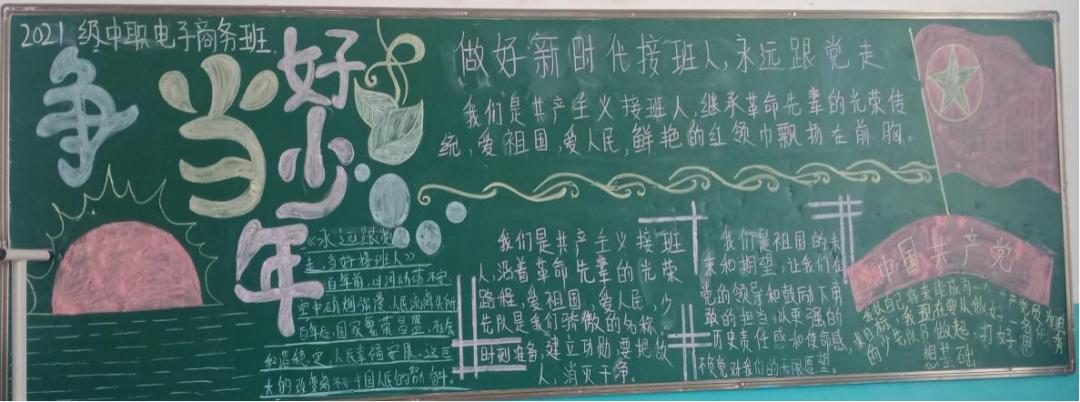 2021级中职电子商务班
争当好少年
做好新时代接班人,永远跟党走
我们是共产主义接班人,继承革命先辈的光荣传
统,爱祖国,爱人民,鲜艳的红领巾飘扬在前胸。
《永远跟党
走,当好接班人》
百年前,山河动荡不安,
空中硝烟弥漫,人民流离失所
百年后,国家繁荣昌盛,社会
和谐稳定,人民幸福安康。这巨
大的改变离不开中国人民的努力奋斗。
我们是共产主义接班
人,沿着革命先辈的光荣
路程,爱祖国,爱人民,少
先队是我们骄傲的名称,
时刻准备,建立功勋,要把敌
人,消灭干净。
我们是祖国的未
来和期望,让我们在
党的领导和鼓励下,用
敢的担当,以更强的
历史责任感和使命感,
不负党对我们的无限愿望。
中国共产党
我以自己将来能成为一
来目标,我现在要从做好一
的少先队员做起,打好
想基础